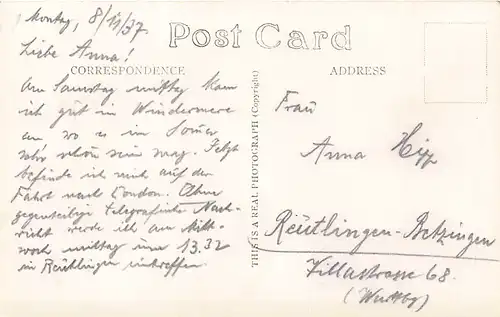 Montag, 8/11/37.
Post Card
Liebe Anna!
CORRESPONDENCE
Am Samstag mittag kam
ich gut in Windermere
an wo es im Somer
sehr schön sein mag. Jetzt
befinde ich mich auf der
Fahrt nach London. Ohne
gegenteilige telegrafische Nach-
richt werde ich am Mitt-
woch mittag um 13.32
in Reütlingen eintreffen.
THIS IS A REAL PHOTOGRAPH (Copyright)
ADDRESS
Frau
Anna Hipp
Reütlingen-Betzingen
Villastrasse 68.
(Wttbg)